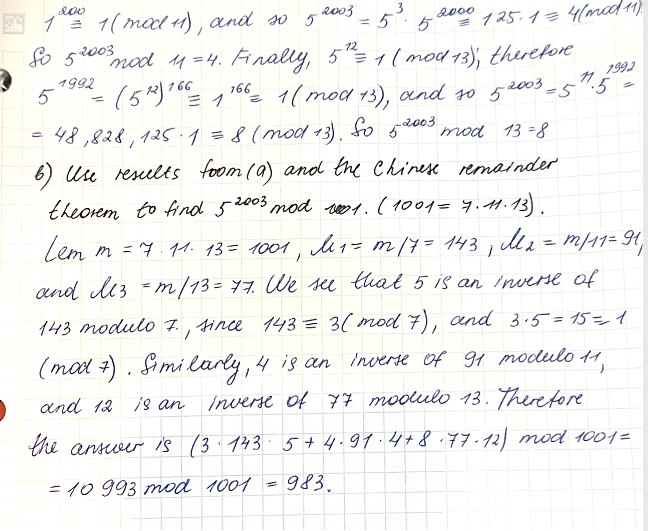 1^200 ≡ 1 (mod 11), and so 5^2003 = 5^3 · 5^2000 ≡ 125·1 ≡ 4 (mod 11).
So 5^2003 mod 11 = 4. Finally, 5^12 ≡ 1 (mod 13), therefore
5^1992 = (5^12)^166 ≡ 1^166 = 1 (mod 13), and so 5^2003 = 5^11 · 5^1992 =
= 48,828,125·1 ≡ 8 (mod 13). So 5^2003 mod 13 = 8
b) Use results foom (a) and the Chinese remainder
theorem to find 5^2003 mod 1001. (1001 = 7·11·13).
Lem m = 7·11·13 = 1001, M1 = m/7 = 143, M2 = m/11 = 91,
and M3 = m/13 = 77. We see that 5 is an inverse of
143 modulo 7, since 143 ≡ 3 (mod 7), and 3·5 = 15 = 1
(mod 7). Similarly, 4 is an inverse of 91 modulo 11,
and 12 is an inverse of 77 modulo 13. Therefore
the answer is (3·143·5 + 4·91·4 + 8·77·12) mod 1001 =
= 10 993 mod 1001 = 983.